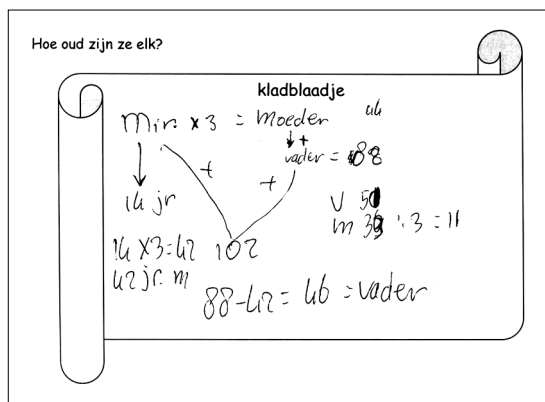 Hoe oud zijn ze elk?
kladblaadje
Mir. x 3 = Moeder
44
+
vader = 88
+
+
14 jr
V 51
m 33 : 3 = 11
14 X3=42
102
42 jr. m
88-42 = 46 = vader